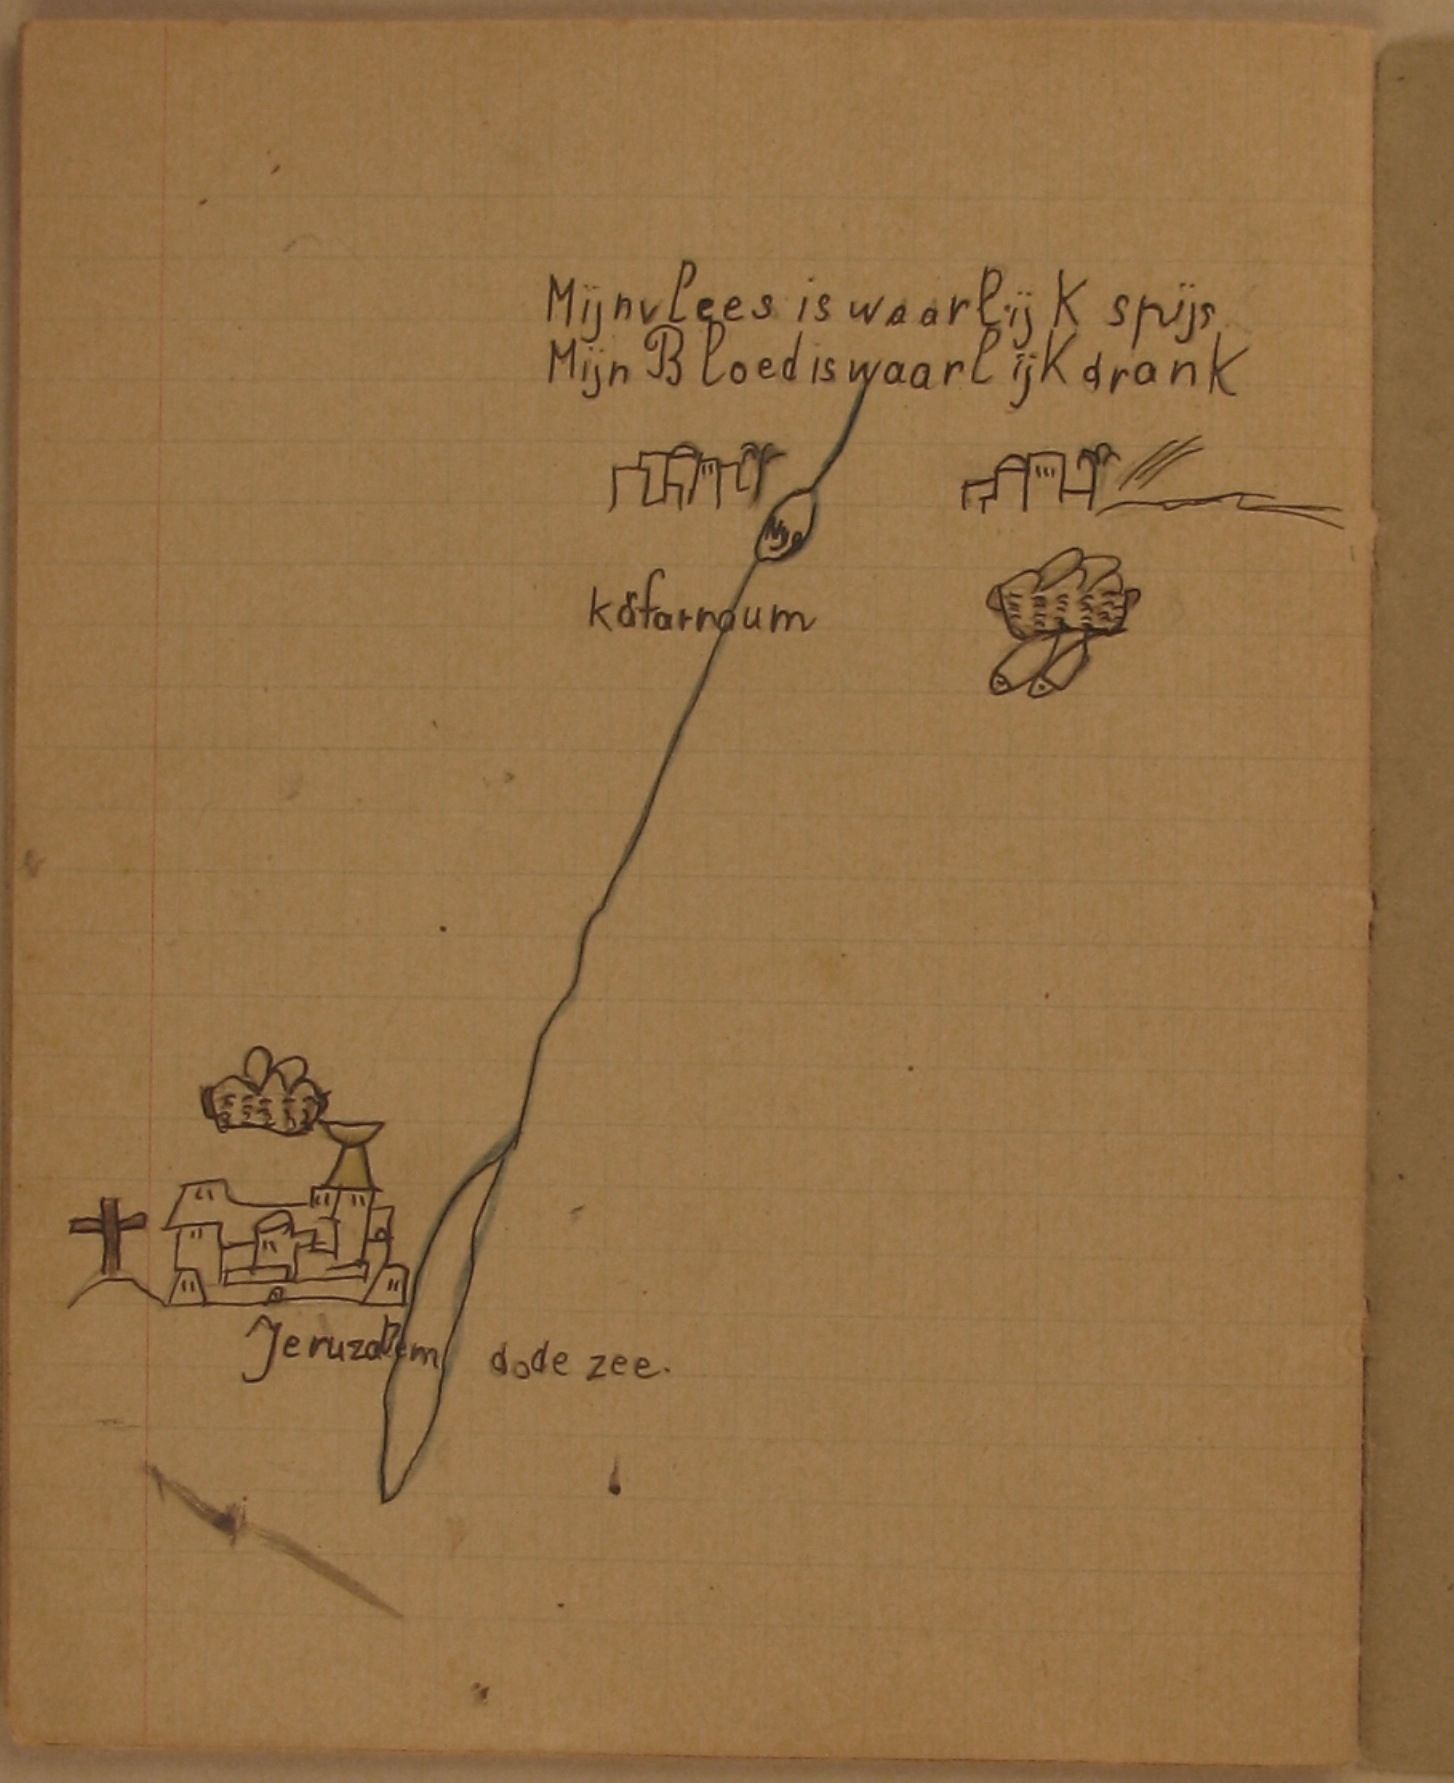 Mijn vlees is waarlijk spijs
Mijn Bloed is waarlijk drank
Kafarnaum
Jeruzalem
dode zee.